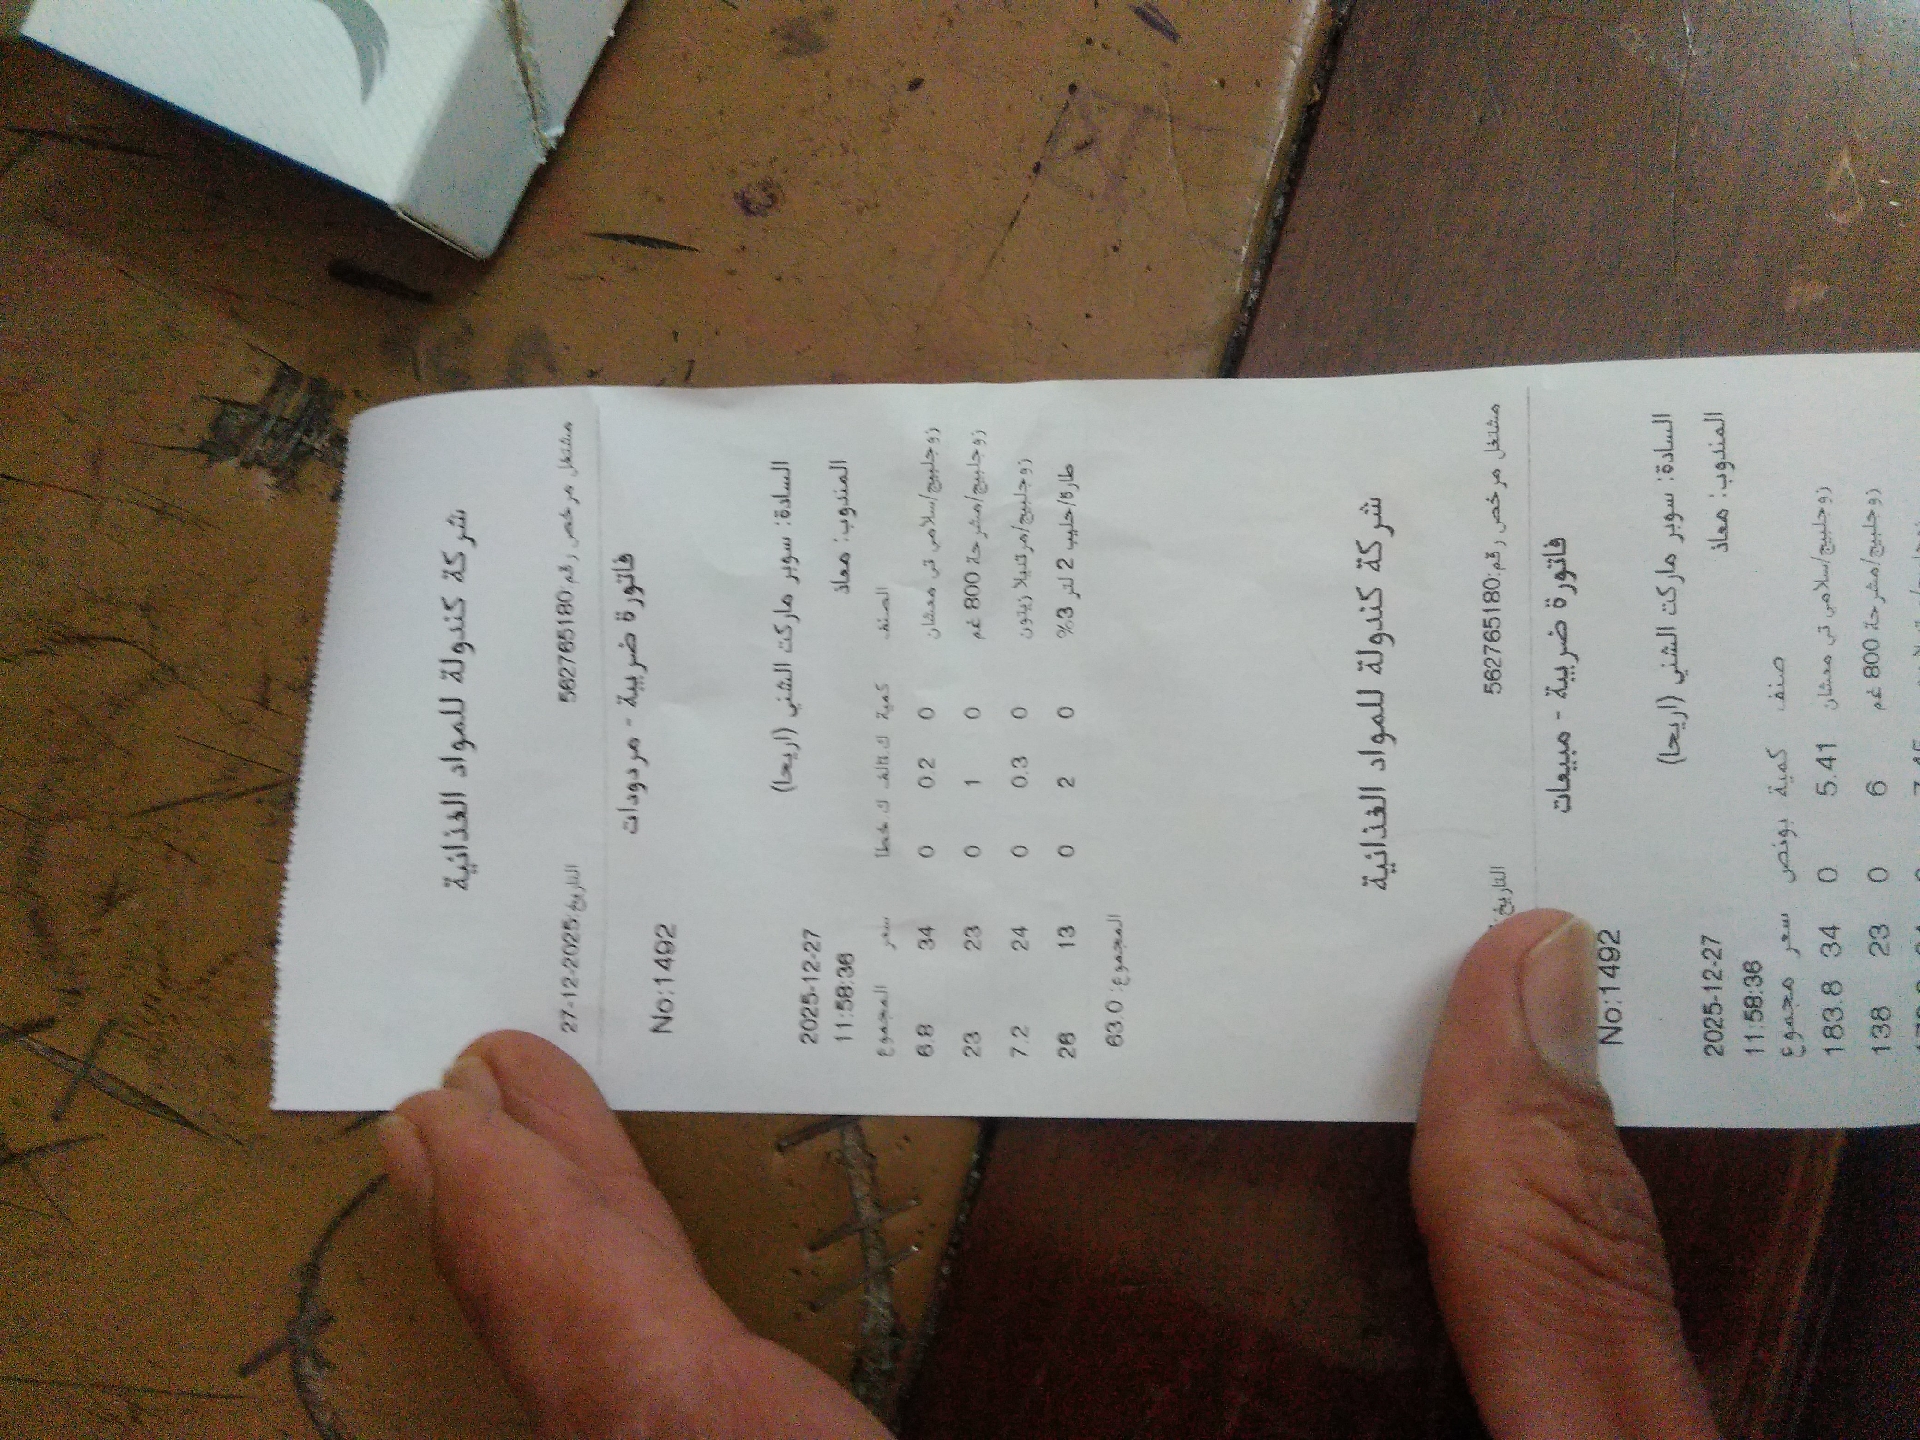 شركة كندولة للمواد الغذائية
مشتغل مرخص رقم:562765180 التاريخ:27-12-2025
فاتورة ضريبة - مردودات
No:1492
السادة: سوبر ماركت الشني (اريحا) 2025-12-27
المندوب: معاذ 11:58:36
الصنف كمية ك.تالف ك.خطا سعر المجموع
زوجلبيج/سلامي تي معشان 0 0.2 0 34 6.8
زوجلبيج/مشرحة 800 غم 0 1 0 23 23
زوجلبيج/مرتديلا زيتون 0 0.3 0 24 7.2
طارة/حليب 2 لتر 3% 0 2 0 13 26
المجموع: 63.0
شركة كندولة للمواد الغذائية
مشتغل مرخص رقم:562765180 التاريخ:
فاتورة ضريبة - مبيعات
No:1492
السادة: سوبر ماركت الشني (اريحا) 2025-12-27
المندوب: معاذ 11:58:36
صنف كمية بونص سعر مجموع
زوجلبيج/سلامي تي معشان 5.41 0 34 183.8
زوجلبيج/مشرحة 800 غم 6 0 23 138